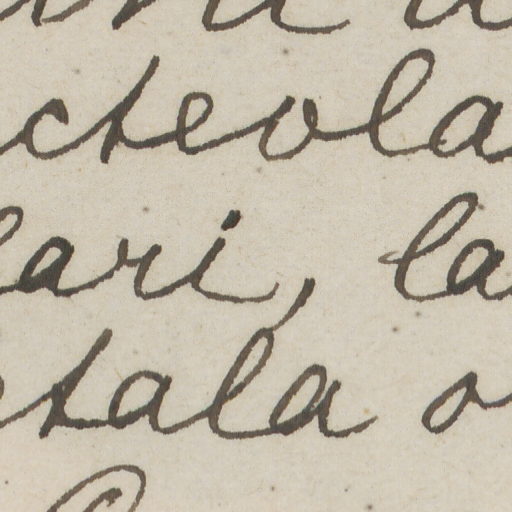 cteola
lari, la
etala o